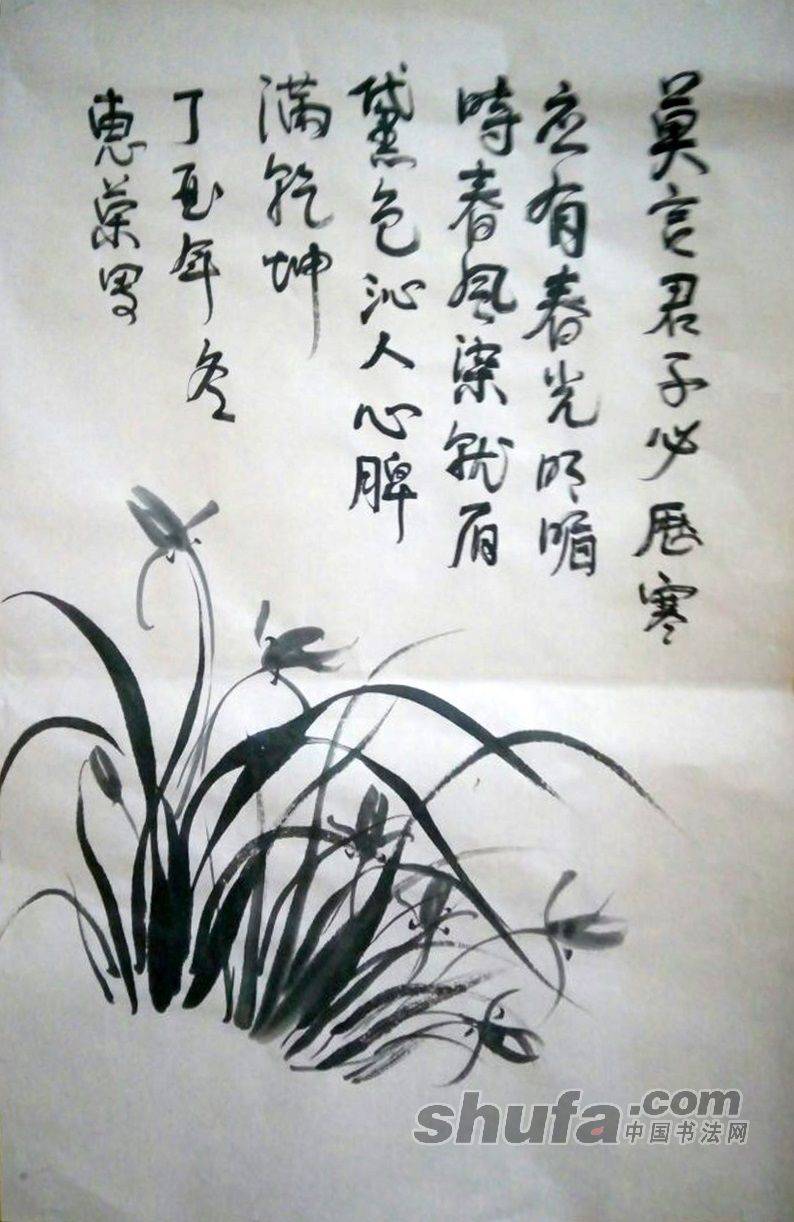 莫言君子必歷寒
应有春光明媚
時春風染就眉
黛色沁人心脾
满乾坤
丁酉年冬
惠荣写
shufa.com
中国书法网